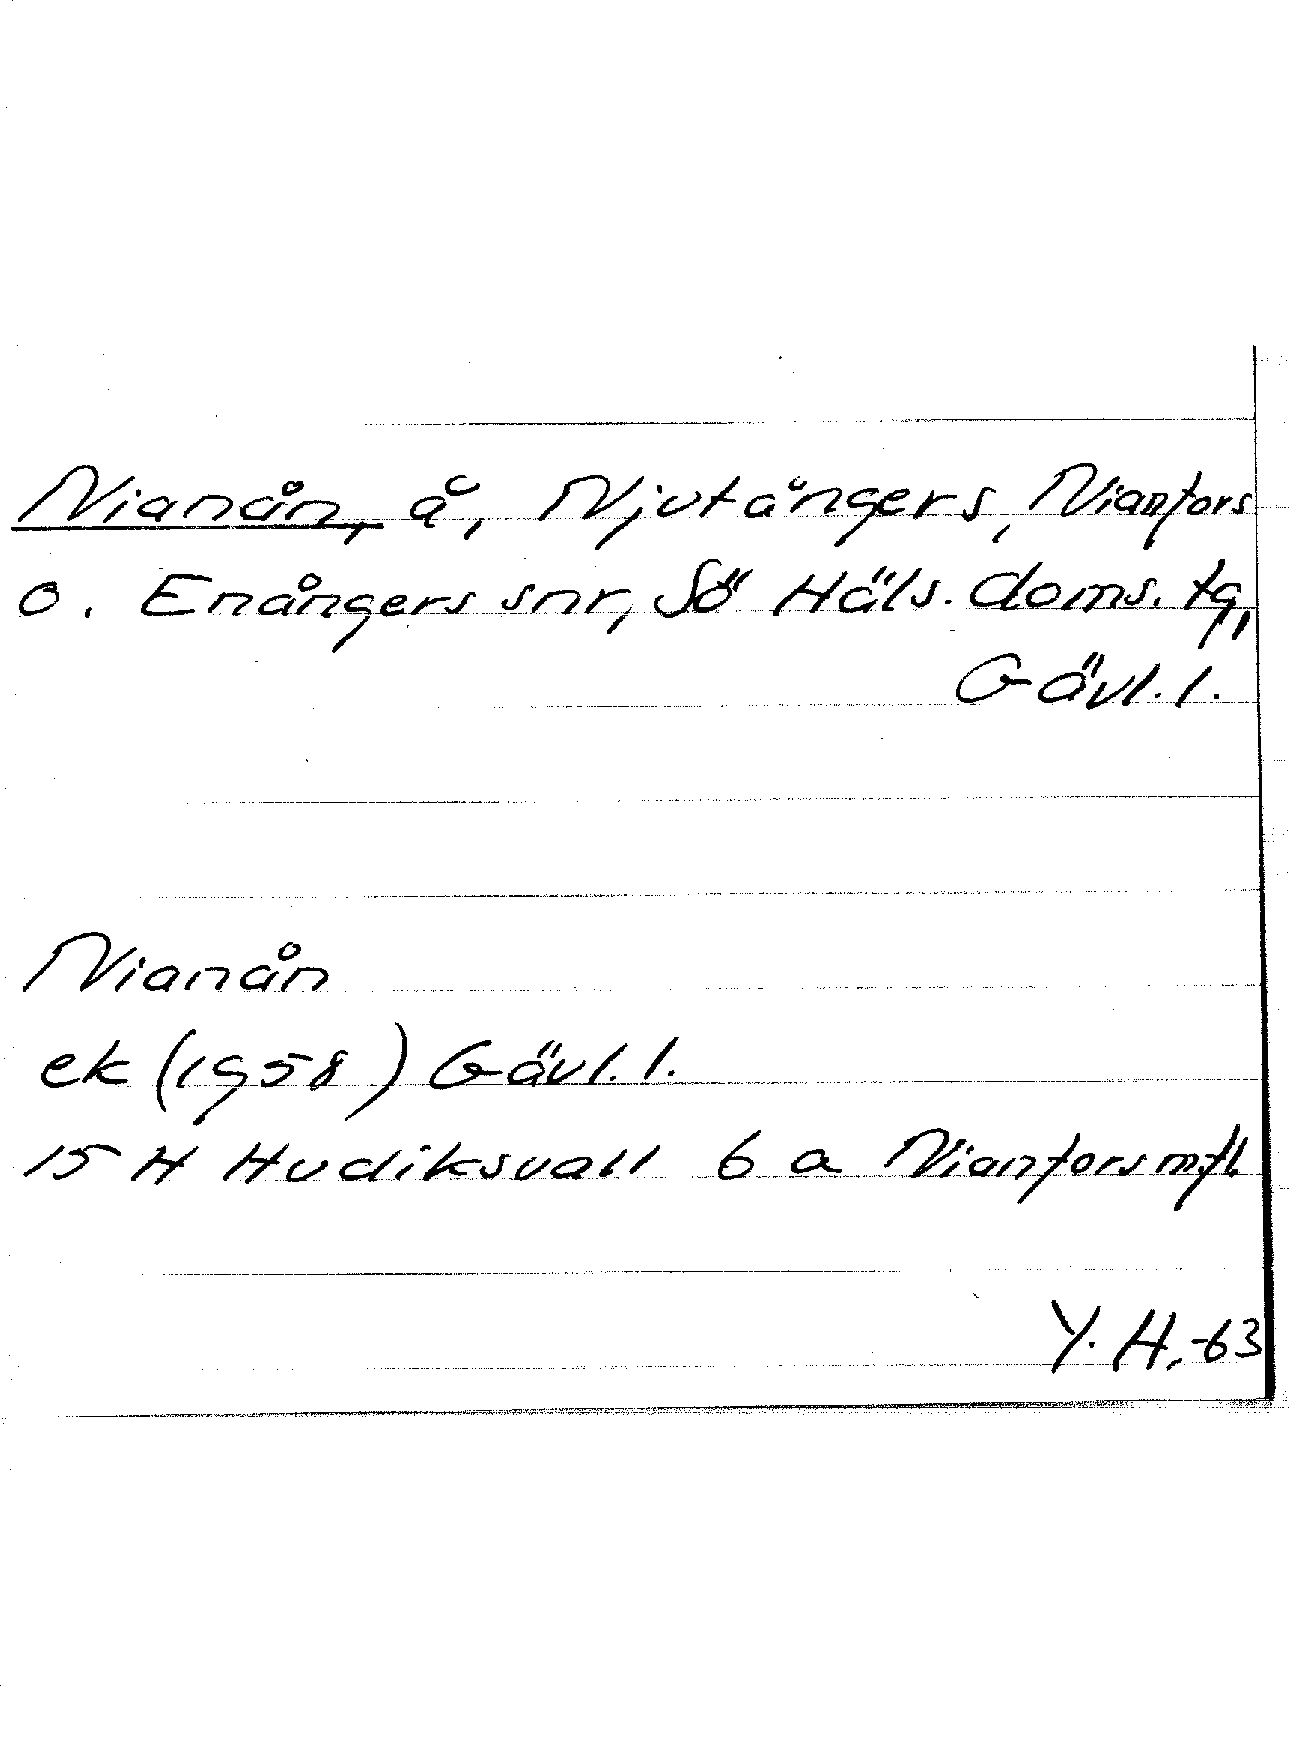 Nianån, å, Njutångers, Nianfors
o. Enångers snr, Sö Häls. doms. tg,
Gävl. l.
Nianån
ek (1958) Gävl. l.
15 H Hudiksvall 6 a Nianfors m.fl.
Y. H. -63